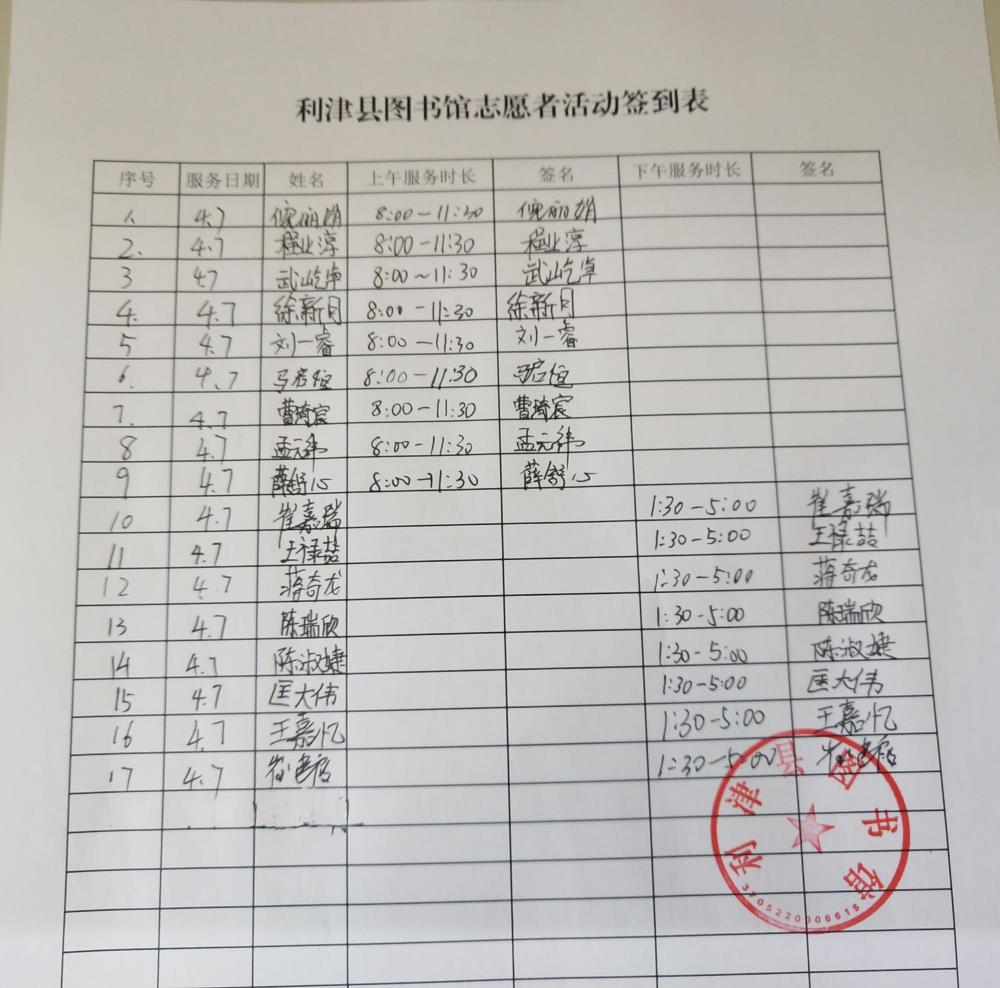 利津县图书馆志愿者活动签到表
序号 服务日期 姓名 上午服务时长 签名 下午服务时长 签名
1. 4.7 倪丽娟 8:00-11:30 倪丽娟
2. 4.7 程业淳 8:00-11:30 程业淳
3 4.7 武屹卓 8:00~11:30 武屹卓
4. 4.7 徐新月 8:00-11:30 徐新月
5 4.7 刘一睿 8:00-11:30 刘一睿
6. 4.7 马君恒 8:00-11:30 马君恒
7. 4.7 曹琦宸 8:00-11:30 曹琦宸
8 4.7 孟元祎 8:00-11:30 孟元祎
9 4.7 薛舒心 8:00-11:30 薛舒心
10 4.7 崔嘉瑞 1:30-5:00 崔嘉瑞
11 4.7 王禄喆 1:30-5:00 王禄喆
12 4.7 蒋奇龙 1:30-5:00 蒋奇龙
13 4.7 陈瑞欣 1:30-5:00 陈瑞欣
14 4.7 陈淑婕 1:30-5:00 陈淑婕
15 4.7 匡大伟 1:30-5:00 匡大伟
16 4.7 王嘉忆 1:30-5:00 王嘉忆
17 4.7 1:30-5:00
利津县图书馆
3705220006615